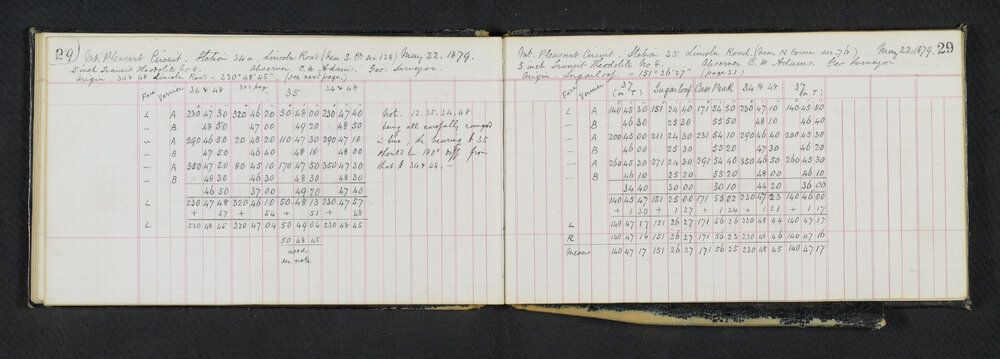 29) Mt. Pleasant Circuit. Station 34a, Lincoln Road (near S. Cr. sec 128) May 22. 1879.
5 inch Transit Theodolite No 8. Observer C. W. Adams. Geo. Surveyor.
Origin 34 & 48 Lincoln Road = 230° 48' 45" (see next page.)
Face Vernier 34 & 48 35 34 & 48
L A 230 47 30 320 46 20 50 48 00 230 47 40
" B 48 50 47 00 49 20 48 50
" A 290 46 50 20 45 20 110 47 30 290 47 10
" B 47 50 46 40 48 10 48 00
" A 350 47 20 80 45 10 170 47 50 350 47 30
" B 48 30 46 30 48 30 48 30
46 50 37 00 49 20 47 40
L 230 47 48 320 46 10 50 48 13 230 47 57
+ 57 + 54 + 51 + 48
L 230 48 45 320 47 04 50 49 04 230 48 45
50 48 45
used
see note
Note. 12. 35. 34. 48
being all carefully ranged
in line, the bearing to 35
should be 180° diff from
that to 34 & 48.
Mt. Pleasant Circuit, Station 35 Lincoln Road, (near N Corner sec. 76), May 22. 1879. 29
5 inch Transit Theodolite No 8 Observer C. W. Adams. Geo. Surveyor
Origin. Sugarloaf = 151° 26' 27" (page 31)
Face Vernier 37 (on T) Sugarloaf Cass Peak 34 & 48 37 (on T)
L A 140 45 30 151 24 40 171 54 50 230 47 10 140 45 50
— B 46 30 25 30 55 50 48 10 46 40
— A 200 45 00 211 24 30 231 54 10 290 46 40 200 45 30
— B 46 00 25 30 55 20 47 30 46 20
— A 260 45 30 271 24 30 291 54 40 350 46 50 260 45 30
— B 46 10 25 20 55 20 48 00 46 10
34 40 30 00 30 10 44 20 36 00
140 45 47 151 25 00 171 55 02 230 47 23 140 46 00
+ 1 30 + 1 27 + 1 24 + 1 21 + 1 17
L 140 47 17 151 26 27 171 56 26 230 48 44 140 47 17
R 140 47 16 151 26 27 171 56 23 230 48 46 140 47 16
means 140 47 17 151 26 27 171 56 25 230 48 45 140 47 17